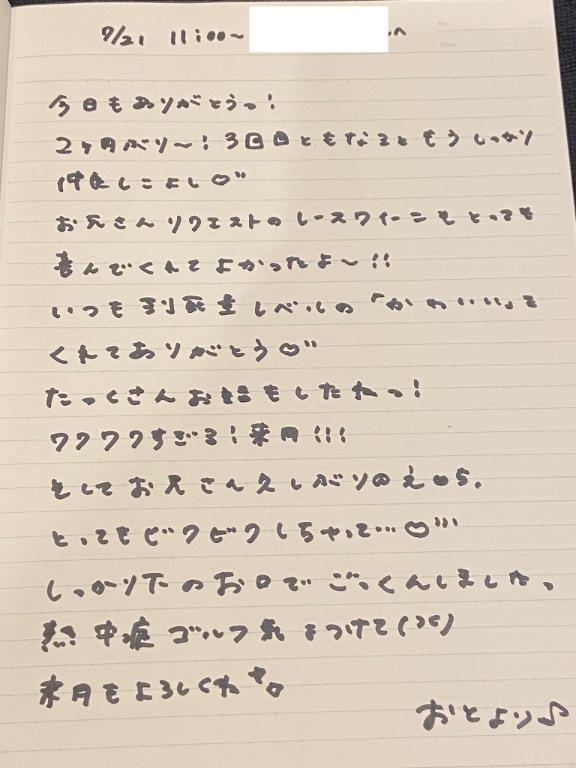 7/21 11:00~ へ
今日もありがとうっ!
2ヶ月ぶり〜!3回目ともなるともうしっかり
仲良しこよし♡"
お兄さんリクエストのレースクイーンもとっても
喜んでくれてよかったよ〜!!
いつも到死量レベルの「かわいい」を
くれてありがとう♡"
たっくさんお話もしたねっ!
ワクワクすごる!来月!!!
そしてお兄さん久しぶりのえ
とってもビクビクしちゃって…♡"'
しっかり下のお口でごっくんしましたっ
熱中症ゴルフ気をつけて(><)
来月もよろしくね
おとより♪